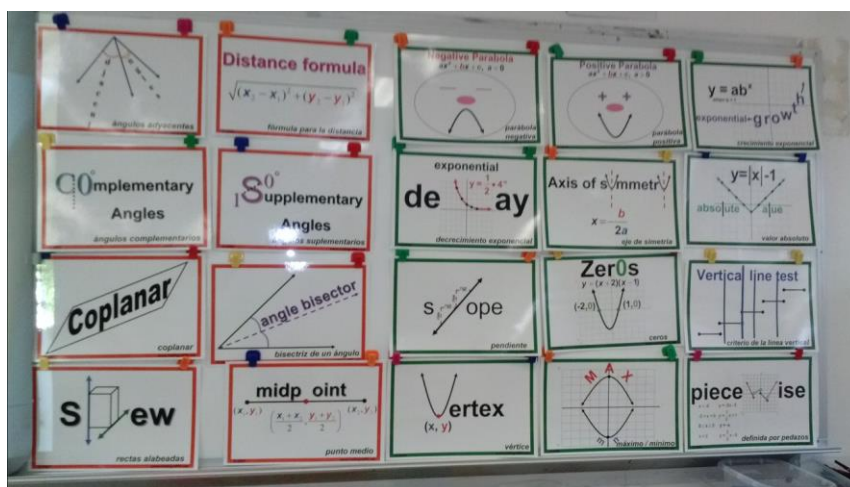 ángulos adyecentes
Distance formula
√(x₂ − x₁)² + (y₂ − y₁)²
fórmula para la distancia
Negative Parabola
parábola
negativa
Positive Parabola
parábola
positiva
y = abˣ
exponential growth
crecimiento exponencial
90°mplementary
Angles
ángulos complementarios
180°
Supplementary
Angles
ángulos suplementarios
exponential
de ay
decrecimiento exponencial
Axis of symmetry
x = - b
2a
eje de simetría
y=|x|-1
absolute value
valor absoluto
Coplanar
coplanar
angle bisector
bisectriz de un ángulo
slope
pendiente
Zer0s
y = (x + 2)(x − 1)
(-2,0) (1,0)
ceros
Vertical line test
criterio de la línea vertical
Skew
rectas alabeadas
midpoint
(x₁, y₁) (x₂, y₂)
(x₁ + x₂ / 2, y₁ + y₂ / 2)
punto medio
Vertex
(x, y)
vértice
MAX
máximo / mínimo
piece ise
definida por pedazos